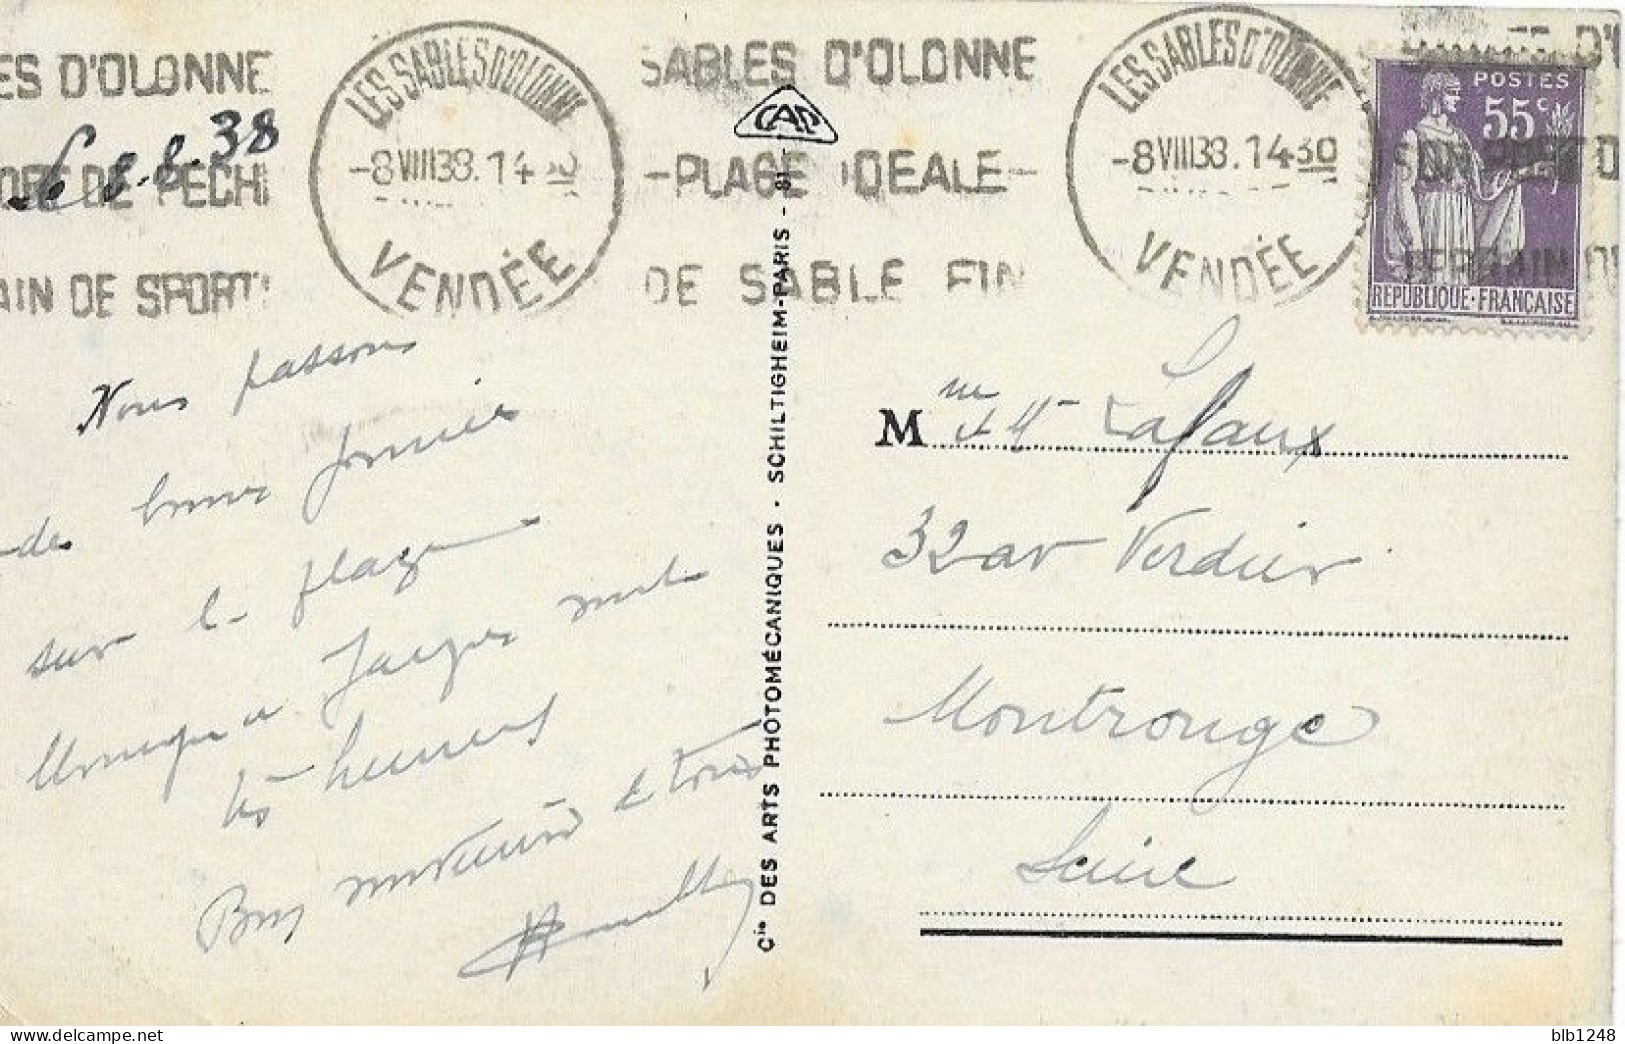 ES D'OLONNE
DE PECHE
AIN DE SPORTS
LES SABLES D'OLONNE
-8 VIII 38. 14 30
VENDÉE
SABLES D'OLONNE
-PLAGE IDEALE-
DE SABLE FIN
LES SABLES D'OLONNE
-8 VIII 38. 14 30
VENDÉE
POSTES
55c
REPUBLIQUE·FRANÇAISE
CAP
Le 8-8-38
Nous passons
des bonnes journées
sur la plage
Monique et Jacques sont
très heureux
Bons à tous
Cie DES ARTS PHOTOMÉCANIQUES · SCHILTIGHEIM-PARIS - 81
Mme et Mr Lafaux
32 av Verdier
Montrouge
Seine
blb1248